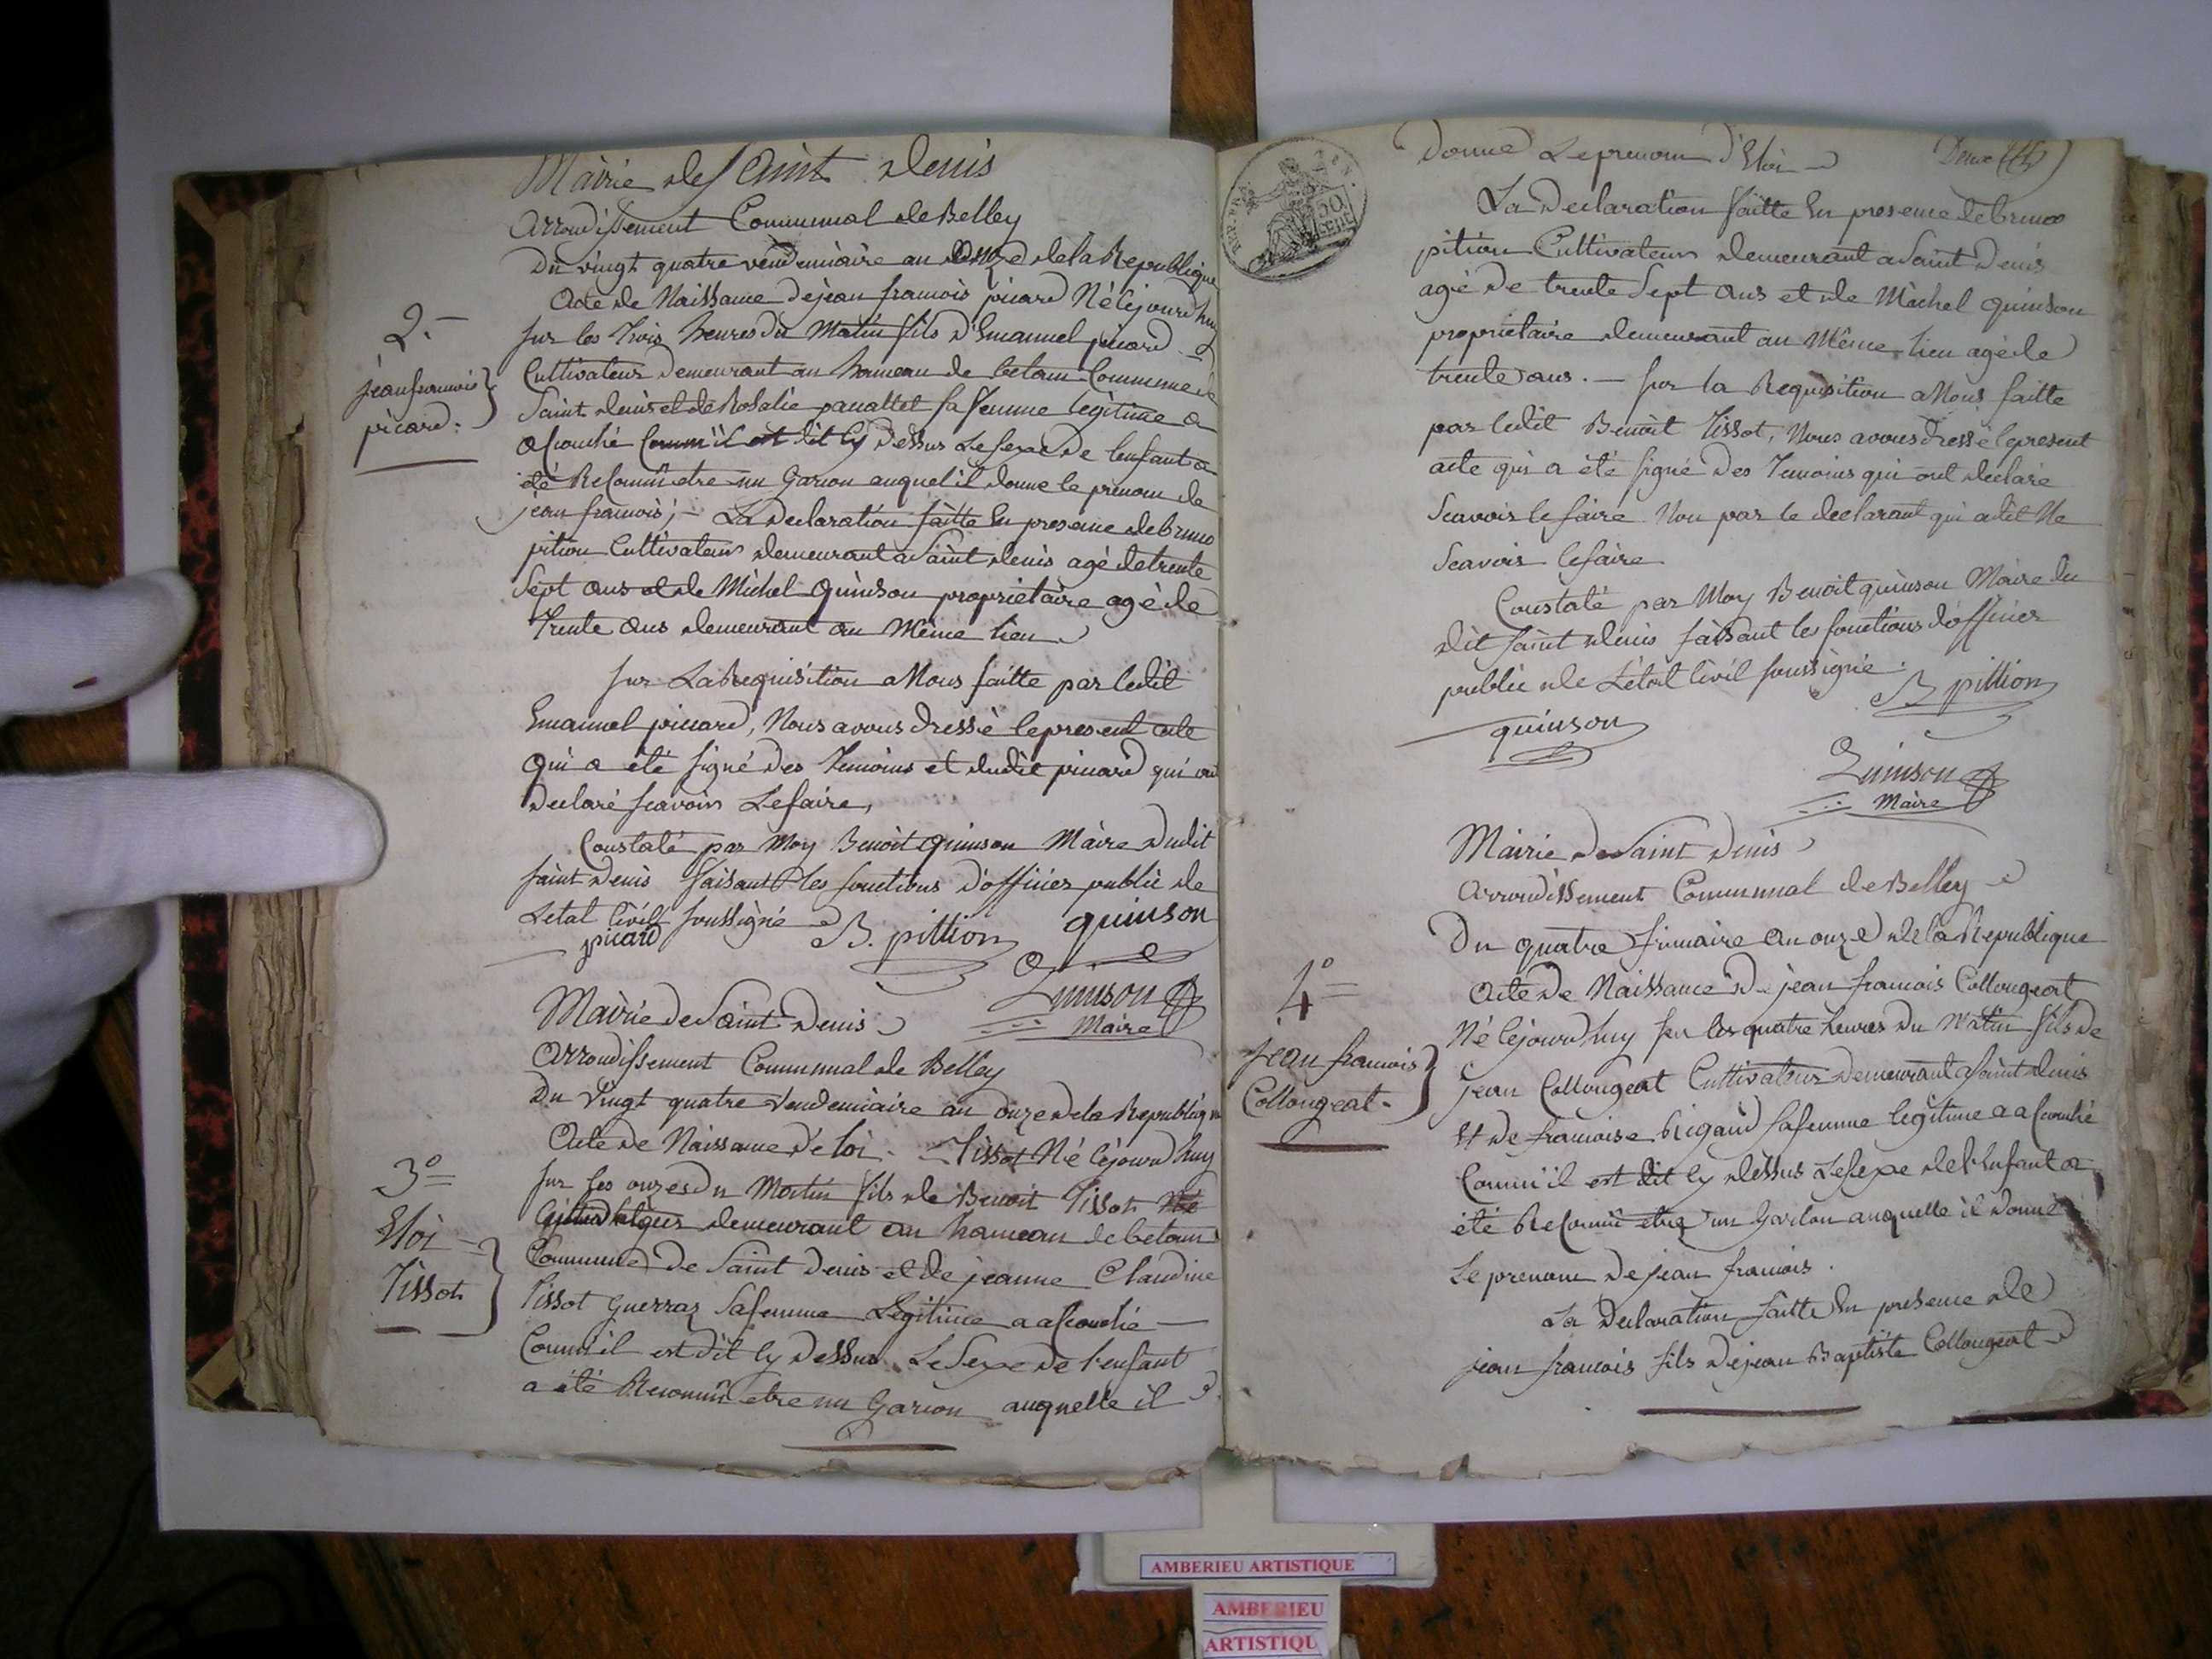 Mairie de Saint Denis
Arrondissement Communal de Belley
Du vingt quatre vendemiaire an onze de la Republique
Acte de Naissance de jean francois picard Né Cejourdhuy
Sur les trois heures du Matin fils d'Emanuel picard
Cultivateur demeurant au hameau de betam Commune de
Saint denis et de Rosalie sa femme legitime a
acouché Comm'il est dit Cy dessus Le sexe de l'enfant a
été Reconnu etre un Garcon auquel il donne le prenom de
jean francois; - La declaration faitte En presence de bruno
pition Cultivateur demeurant a Saint denis agé de trente
Sept ans et de Michel Quinson proprietaire agé de
trente ans demeurant au Même lieu
Sur La Requisition a Nous faitte par ledit
Emanuel picard, Nous avons dressé le present acte
Qui a été signé des temoins et dudit picard qui ont
declaré scavoir Le faire,
Constaté par Moy Benoit Quinson Maire dudit
Saint denis faisant les fonctions d'officier public de
Letat Civil soussigné
picard B. pittion quinson
Quinson
Maire
2.
jean francois
picard.
Mairie de Saint Denis
Arrondissement Communal de Belley
Du Vingt quatre Vendemiaire an onze de la Republique
Acte de Naissance d'Eloi Tissot Né Cejourdhuy
Sur les onze du Matin fils de Benoit Tissot
demeurant au hameau de betam
Commune de Saint Denis et de jeanne Claudine
Tissot Guerraz Sa femme Legitime a acouché
Comm'il est dit Cy dessus Le Sexe de l'enfant
a été Reconnu etre un Garcon auquelle il
3°
Eloi
Tissot
Deux
donne Le prenom d'Eloi
La declaration faitte En presence de bruno
pition Cultivateur demeurant a Saint Denis
agé de trente Sept ans et de Michel quinson
proprietaire demeurant au Même lieu agé de
trente ans. - Sur la Requisition a Nous faitte
par ledit Benoit Tissot, Nous avons dressé le present
acte qui a été signé des temoins qui ont declaré
Scavoir le faire Non par le declarant qui a dit Ne
Scavoir le faire
Constaté par Moy Benoit quinson Maire du
dit saint denis faisant les fonctions d'officier
public de L'état Civil soussigné.
quinson B pittion
Quinson
Maire
Mairie de Saint Denis
Arrondissement Communal de Belley
Du quatre frimaire an onze de la Republique
Acte de Naissance de jean francois Collongeat
Né Cejourdhuy Sur les quatre heures du Matin fils de
jean Collongeat Cultivateur demeurant a Saint denis
Et de francoise Rigaud sa femme legitime a acouché
Comm'il est dit Cy dessus Le sexe de l'Enfant a
été Reconnu etre un Garcon auquelle il donne
Le prenom de jean francois.
La declaration faitte En presence de
jean francois fils de jean Baptiste Collongeat
4°
jean francois
Collongeat.
AMBERIEU ARTISTIQUE
AMBERIEU
ARTISTIQU